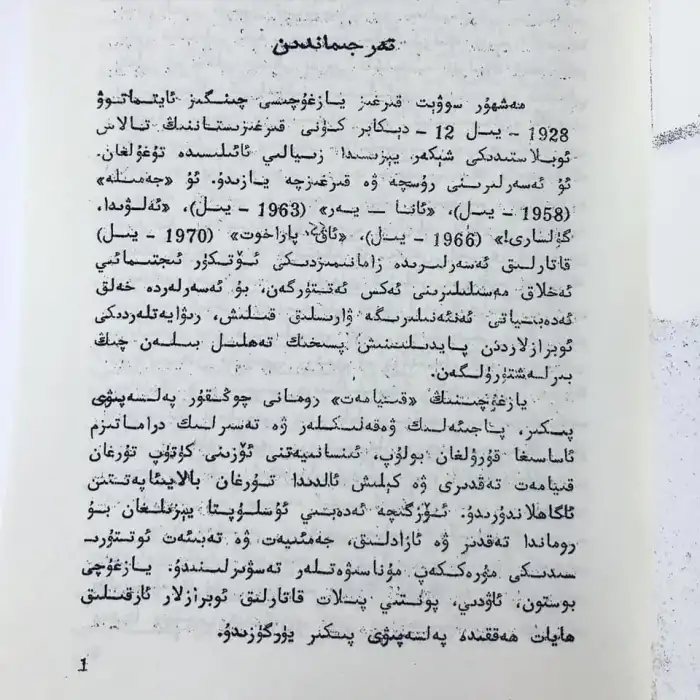 تەرجىماندىن
مەشھۇر سوۋېت قىرغىز يازغۇچىسى چىنگىز ئايتماتوۋ
1928 - يىل 12 - دېكابر كۈنى قىرغىزىستاننىڭ تالاس
ئوبلاستىدىكى شېكەر يېزىسىدا زىيالىي ئائىلىسىدە تۇغۇلغان.
ئۇ ئەسەرلىرىنى رۇسچە ۋە قىرغىزچە يازىدۇ. ئۇ «جەمىلە»
(1958 - يىل)، «ئانا — يەر» (1963 - يىل)، «ئەلۋىدا،
گۈلسارى!» (1966 - يىل)، «ئاق پاراخوت» (1970 - يىل)
قاتارلىق ئەسەرلىرىدە زامانىمىزدىكى ئۆتكۈر ئىجتىمائىي
ئەخلاق مەسىلىلىرىنى ئەكس ئەتتۈرگەن، بۇ ئەسەرلەردە خەلق
ئەدەبىياتى ئەنئەنىلىرىگە ۋارىسلىق قىلىش، رىۋايەتلەردىكى
ئوبرازلاردىن پايدىلىنىش پسىخىك تەھلىل بىلەن چىڭ
بىرلەشتۈرۈلگەن.
يازغۇچىنىڭ «قىيامەت» رومانى چوڭقۇر پەلسەپىۋى
پىكىر، پاجىئەلىك ۋەقەلىكلەر ۋە تەسىرلىك دراماتىزم
ئاساسىغا قۇرۇلغان بولۇپ، ئىنسانىيەتنى ئۆزىنى كۈتۈپ تۇرغان
قىيامەت تەقدىرى ۋە كېلىش ئالدىدا تۇرغان بالايىئاپەتتىن
ئاگاھلاندۇرىدۇ. ئۆزگىچە ئەدەبىي ئۇسلۇپتا يېزىلغان بۇ
روماندا تەقدىر ۋە ئازادلىق، جەمئىيەت ۋە تەبىئەت ئوتتۇرى-
سىدىكى مۇرەككەپ مۇناسىۋەتلەر تەسۋىرلىنىدۇ. يازغۇچى
بوستون، ئاۋدىي، پونتىي پىلات قاتارلىق ئوبرازلار ئارقىلىق
ھايات ھەققىدە پەلسەپىۋى پىكىر يۈرگۈزىدۇ.
1